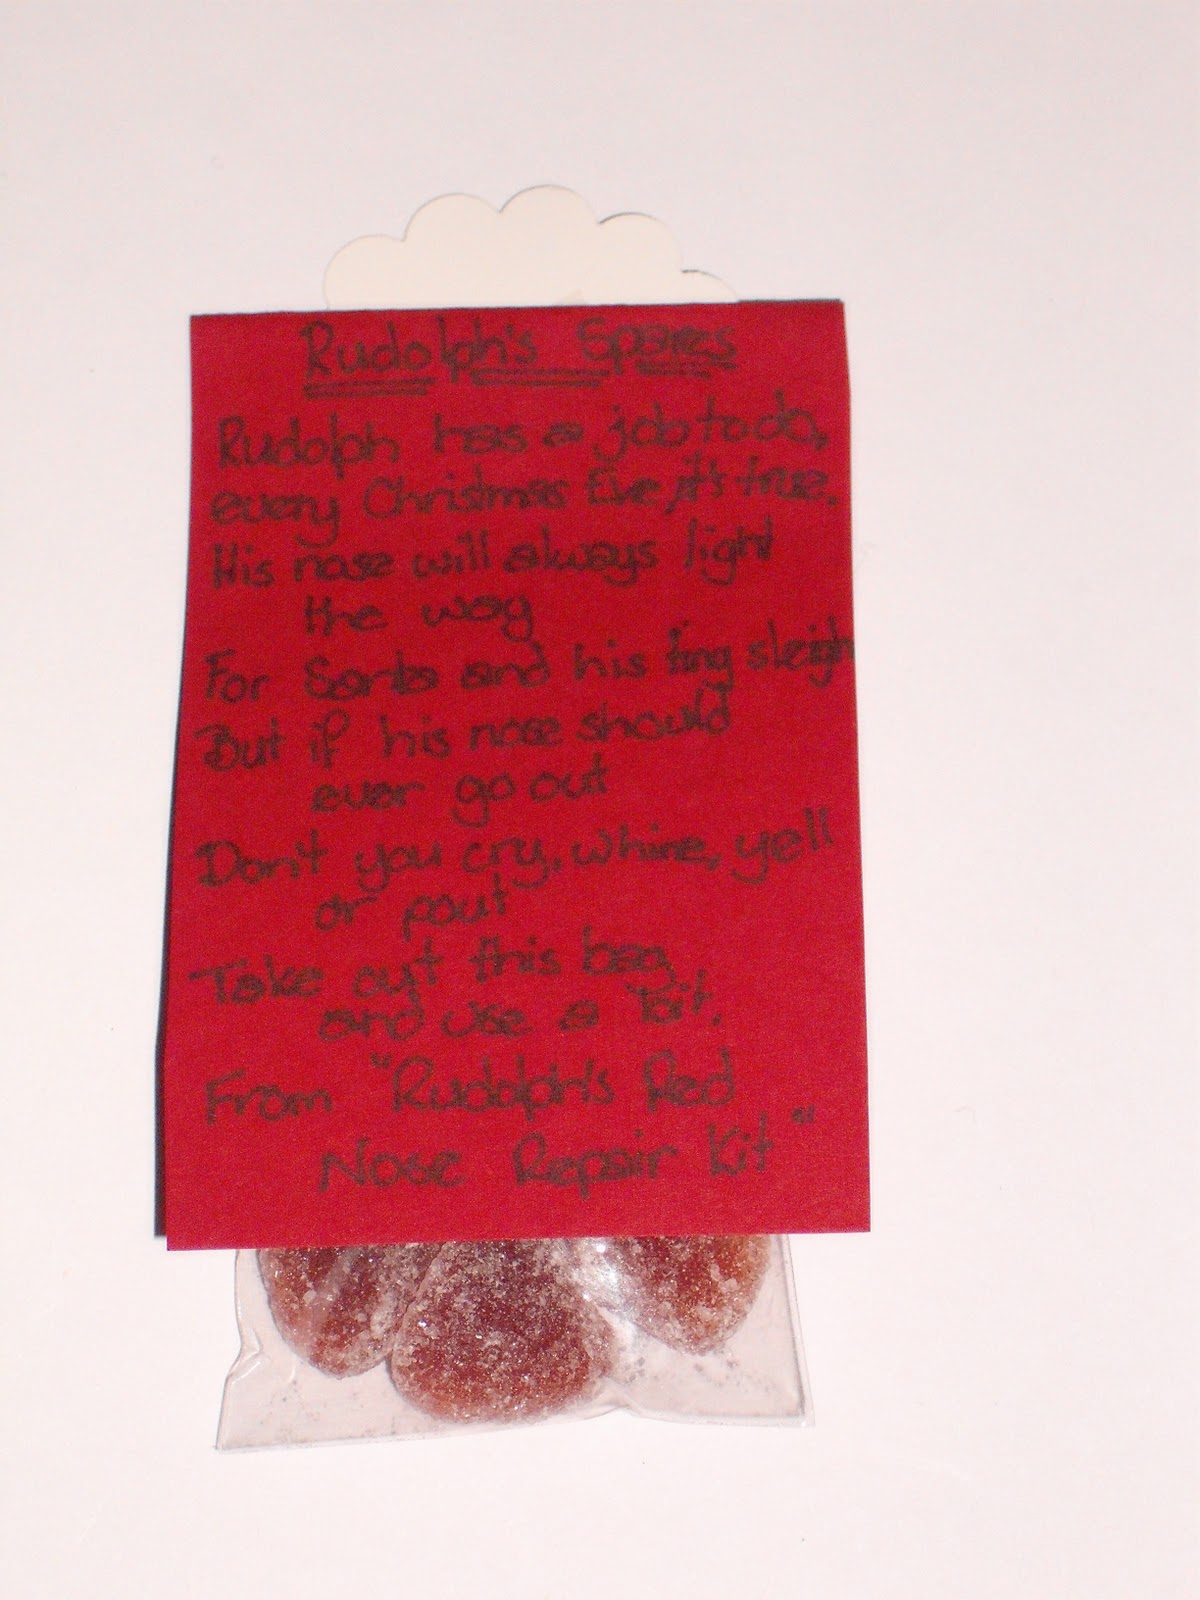 Rudolph's Spares
Rudolph has a job to do,
every Christmas Eve, it's true.
His nose will always light
the way
For Santa and his tiny sleigh
But if his nose should
ever go out
Don't you cry, whine, yell
or pout
Take out this bag
and use a bit.
From "Rudolph's Red
Nose Repair Kit"